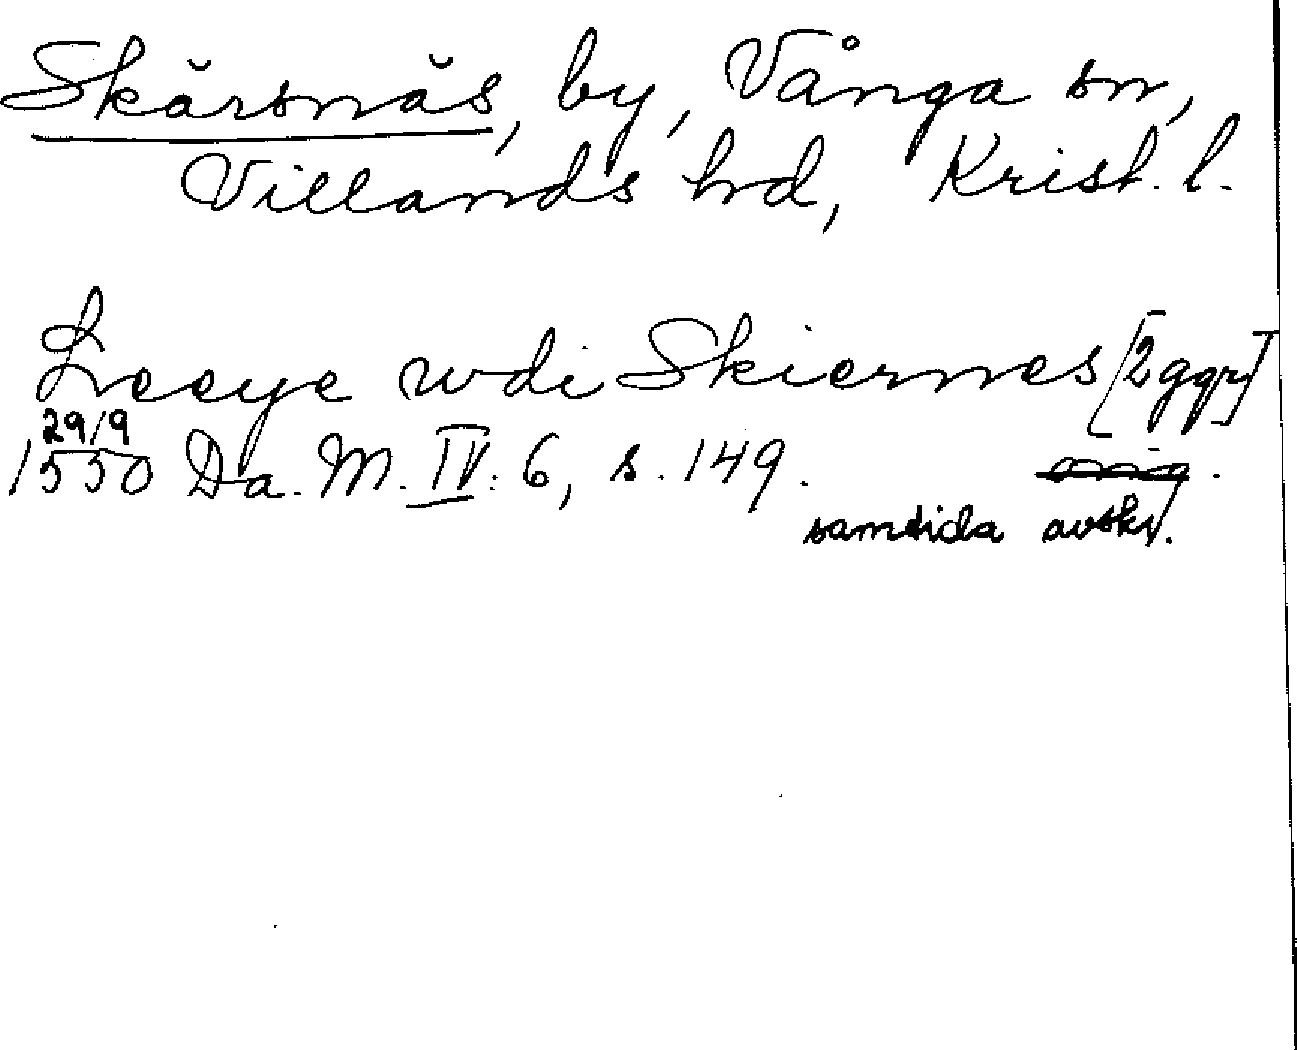 Skärsnäs, by, Vånga sn,
Villands hd, Krist. l.
wdi Skiernes [2 ggr]
29/9
1550 Da. M. IV: 6, s. 149.
samtida avskr.